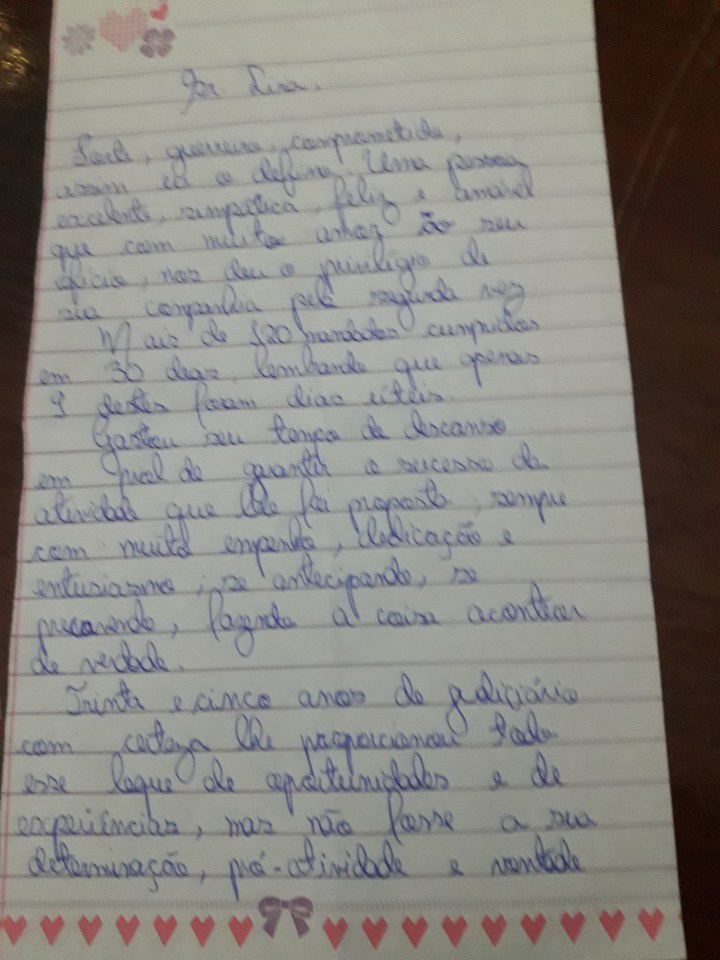 Sr. Lira.
Leal, guerreiro, comprometido,
assim eu o defino. Uma pessoa
excelente, simpática, feliz e amável
que com muito amor ão seu
ofício, nos deu o privilégio de
sua companhia pela segunda vez
Mais de 520 mandados cumpridos
em 30 dias, lembrando que apenas
9 destes foram dias úteis.
Gastou seu tempo de descanso
em prol de garantir o sucesso da
atividade que lhe foi proposta, sempre
com muito empenho, dedicação e
entusiasmo, se antecipando, se
precavendo, fazendo a coisa acontecer
de verdade.
Trinta e cinco anos de judiciário
com certeza lhe proporcionou todo
esse leque de oportunidades e de
experiências, mas não fosse a sua
determinação, pró-atividade e vontade